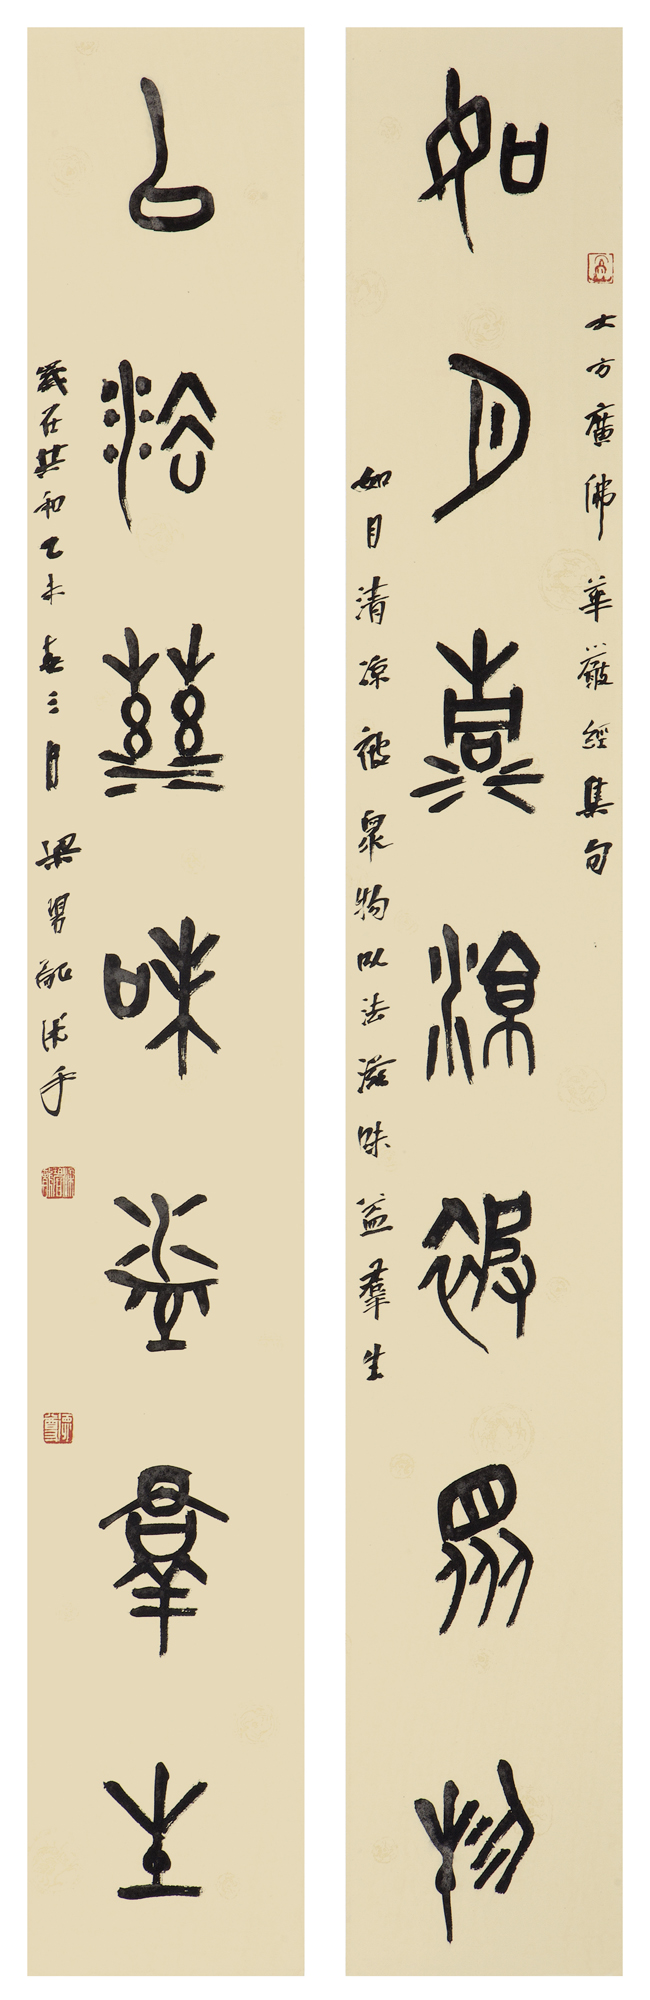 大方廣佛華嚴經集句
如月清涼被眾物
如月清涼被眾物以法滋味益羣生
以法滋味益羣生
歲在共和乙未春三月梁